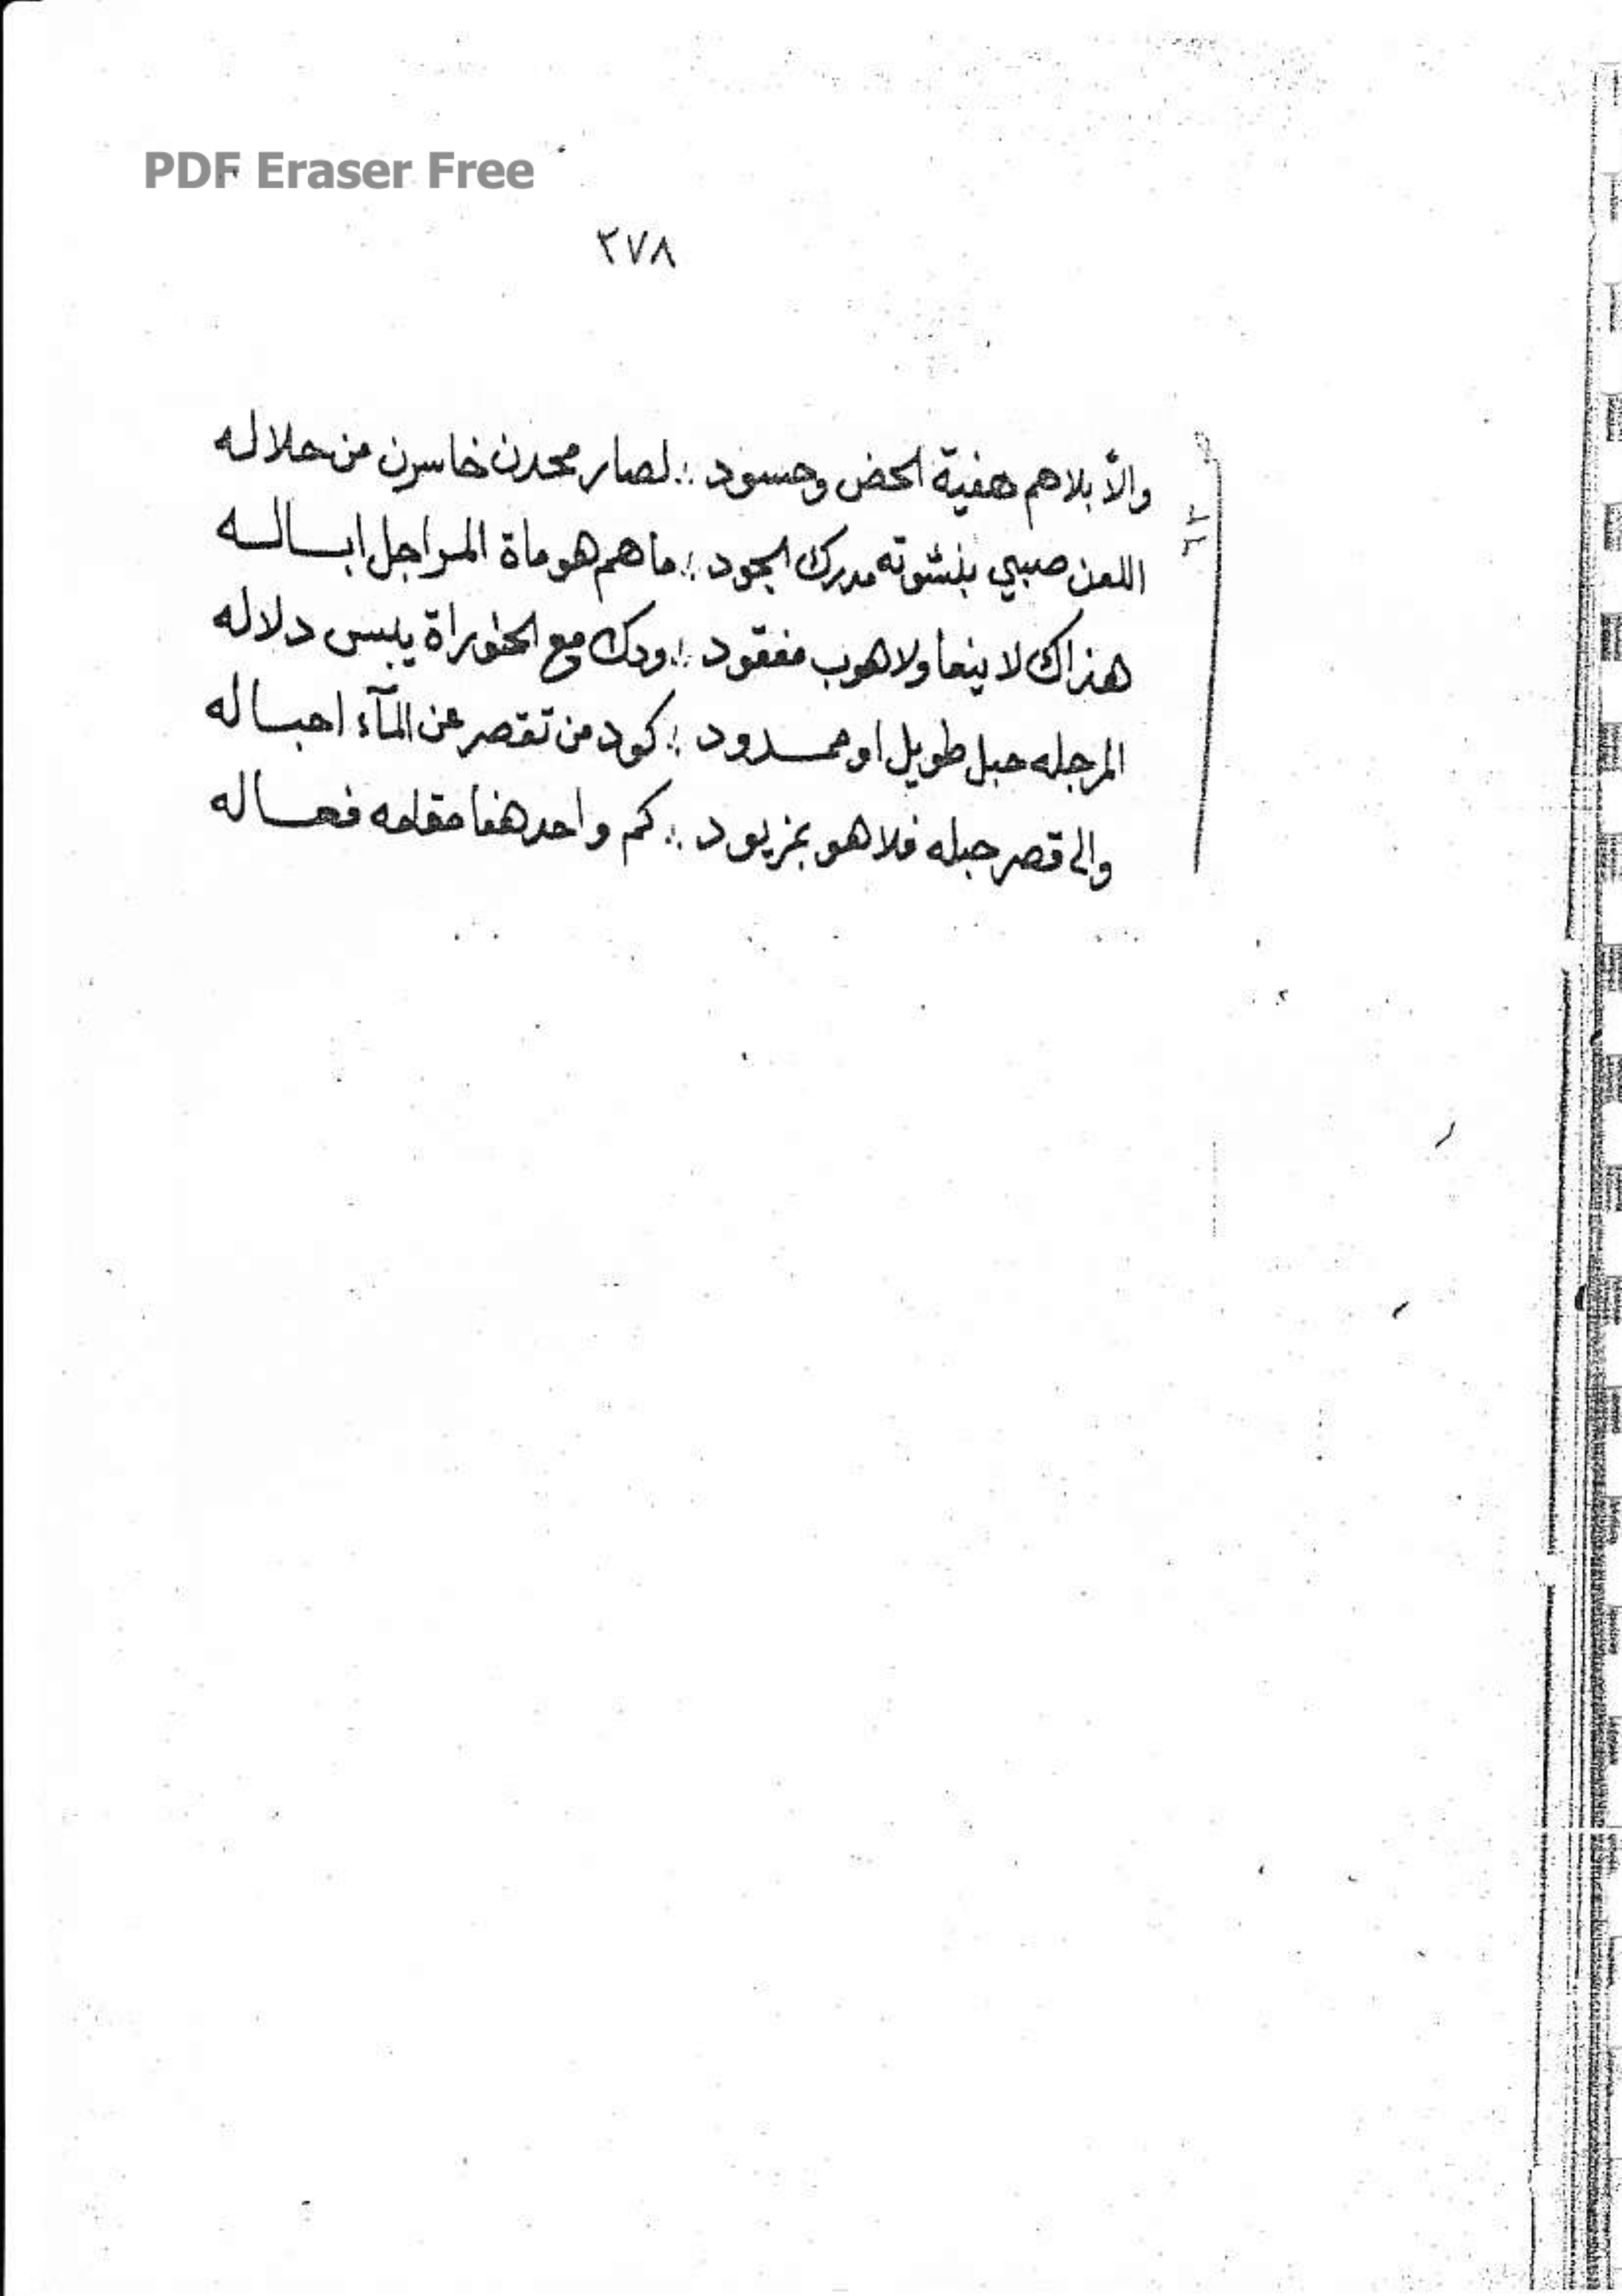 PDF Eraser Free
٢٧٨
والّا بلاهم هفية الحض وحسود ؞ لصار محدن خاسرن من حلاله
اللعن صبيي بنشوته مدرك الجود ؞ ما هم هو ماة المراجل ابساله
هذاك لا ينعا ولا هوب مفقود ؞ ودك مع الخفراة يلبس دلاله
المرجله حبل طويل او ممدود ؞ كود من تقصر عن المآء احباله
والى قصر حبله فلا هو بمزيود ؞ كم واحد هفا مقامه فعاله